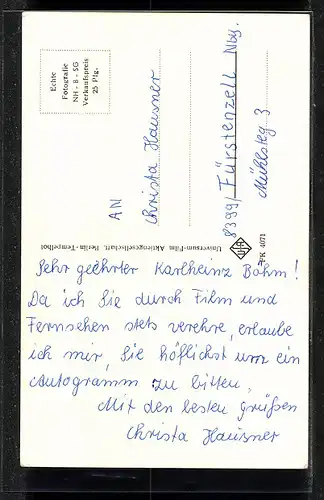 Echte
Fotografie
NH - 8 - SG
Verkaufspreis
25 Pfg.
AN
Christa Hausner
8399/ Fürstenzell Nby.
Mühlsteg 3
Universum-Film Aktiengesellschaft, Berlin-Tempelhof
UFA
FK 4071
Sehr geehrter Karlheinz Böhm!
Da ich Sie durch Film und
Fernsehen stets verehre, erlaube
ich mir, Sie höflichst um ein
Autogramm zu bitten,
Mit den besten Grüßen
Christa Hausner